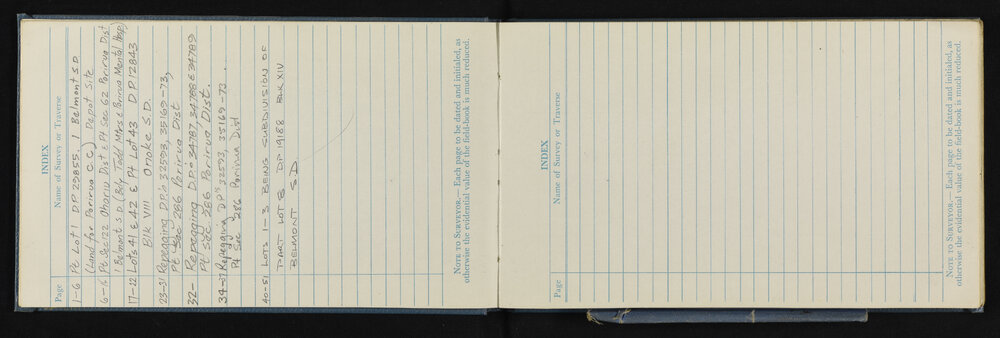 INDEX
Page Name of Survey or Traverse
1-6 Pt Lot 1 DP 29855. 1 Belmont S D
(Land for Porirua C C) Depot Site
6-16 Pt Sec 122 Ohariu Dist & Pt Sec 62 Porirua Dist
1 Belmont S.D. (Bdy Todd Mtrs & Porirua Mental Hosp)
17-22 Lots 41 & 42 & Pt Lot 43 D.P. 12843
Blk VIII S.D.
23-31 Repegging D.P.s 32593, 35169-73,
Pt Sec 286 Porirua Dist
32- Repegging D.P.s 34787, 34788 & 34789
Pt Sec 286 Porirua Dist.
34-37 Repegging DPs 32593, 35169-73
Pt Sec 286 Porirua Dist
40-51 LOTS 1-3 BEING SUBDIVISION OF
PART LOT 8 DP 19188 BLK XIV
BELMONT S D
NOTE TO SURVEYOR.— Each page to be dated and initialed, as
otherwise the evidential value of the field-book is much reduced.
INDEX
Page Name of Survey or Traverse
NOTE TO SURVEYOR.— Each page to be dated and initialed, as
otherwise the evidential value of the field-book is much reduced.